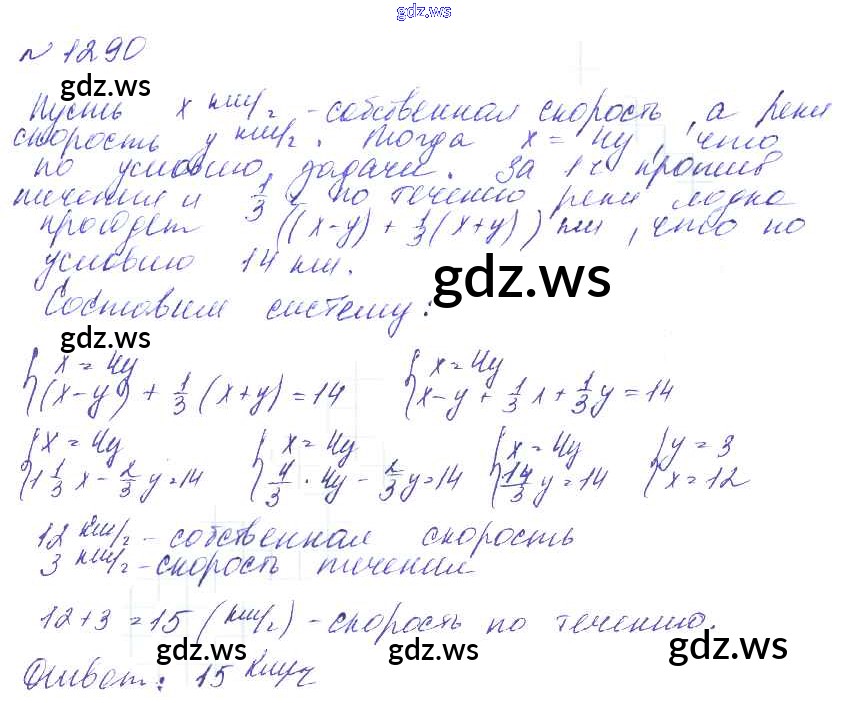 gdz.ws
№ 1290
gdz.ws
Пусть x км/г - собственная скорость, а реки
скорость y км/г. Тогда x = 4y, что
по условию задачи. За 1ч против
течения и 1/3 ч по течению реки лодка
пройдет ((x-y) + 1/3(x+y)) км, что по
условию 14 км.
gdz.ws
Составим систему:
gdz.ws
{x = 4y {x = 4y
{(x-y) + 1/3 (x+y) = 14 {x-y + 1/3 x + 1/3 y = 14
{x = 4y {x = 4y {x = 4y {y = 3
{1 1/3 x - 2/3 y = 14 {4/3 · 4y - 2/3 y = 14 {14/3 y = 14 {x = 12
12 км/г - собственная скорость
3 км/г - скорость течения
12 + 3 = 15 (км/г) - скорость по течению.
gdz.ws gdz.ws gdz.ws
Ответ: 15 км/ч